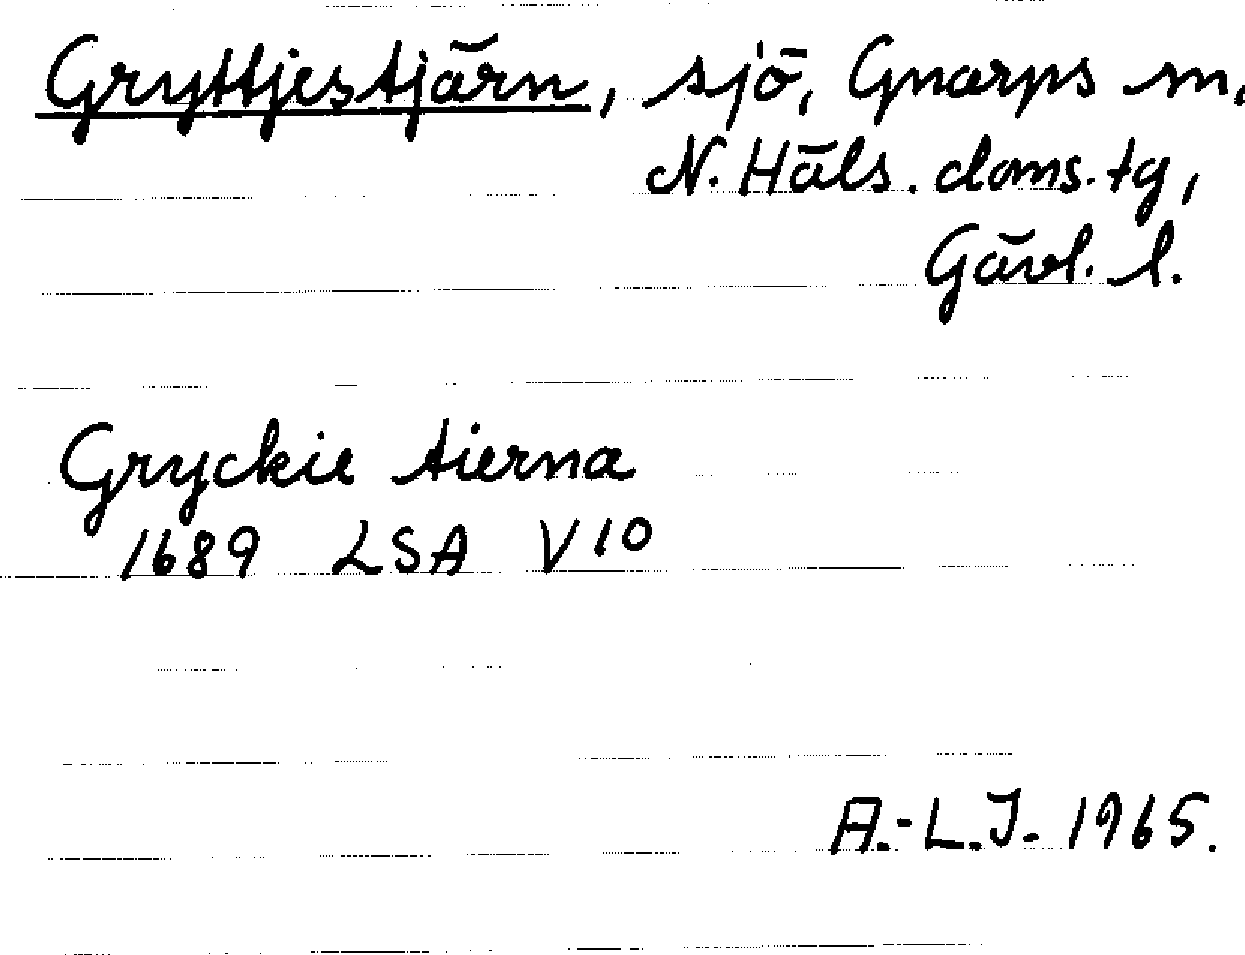 Gryttjestjärn, sjö, Gnarps sn,
N. Häls. doms. tg,
Gävl. l.
Gryckie tierna
1689 LSA V10
A.-L.J. 1965.